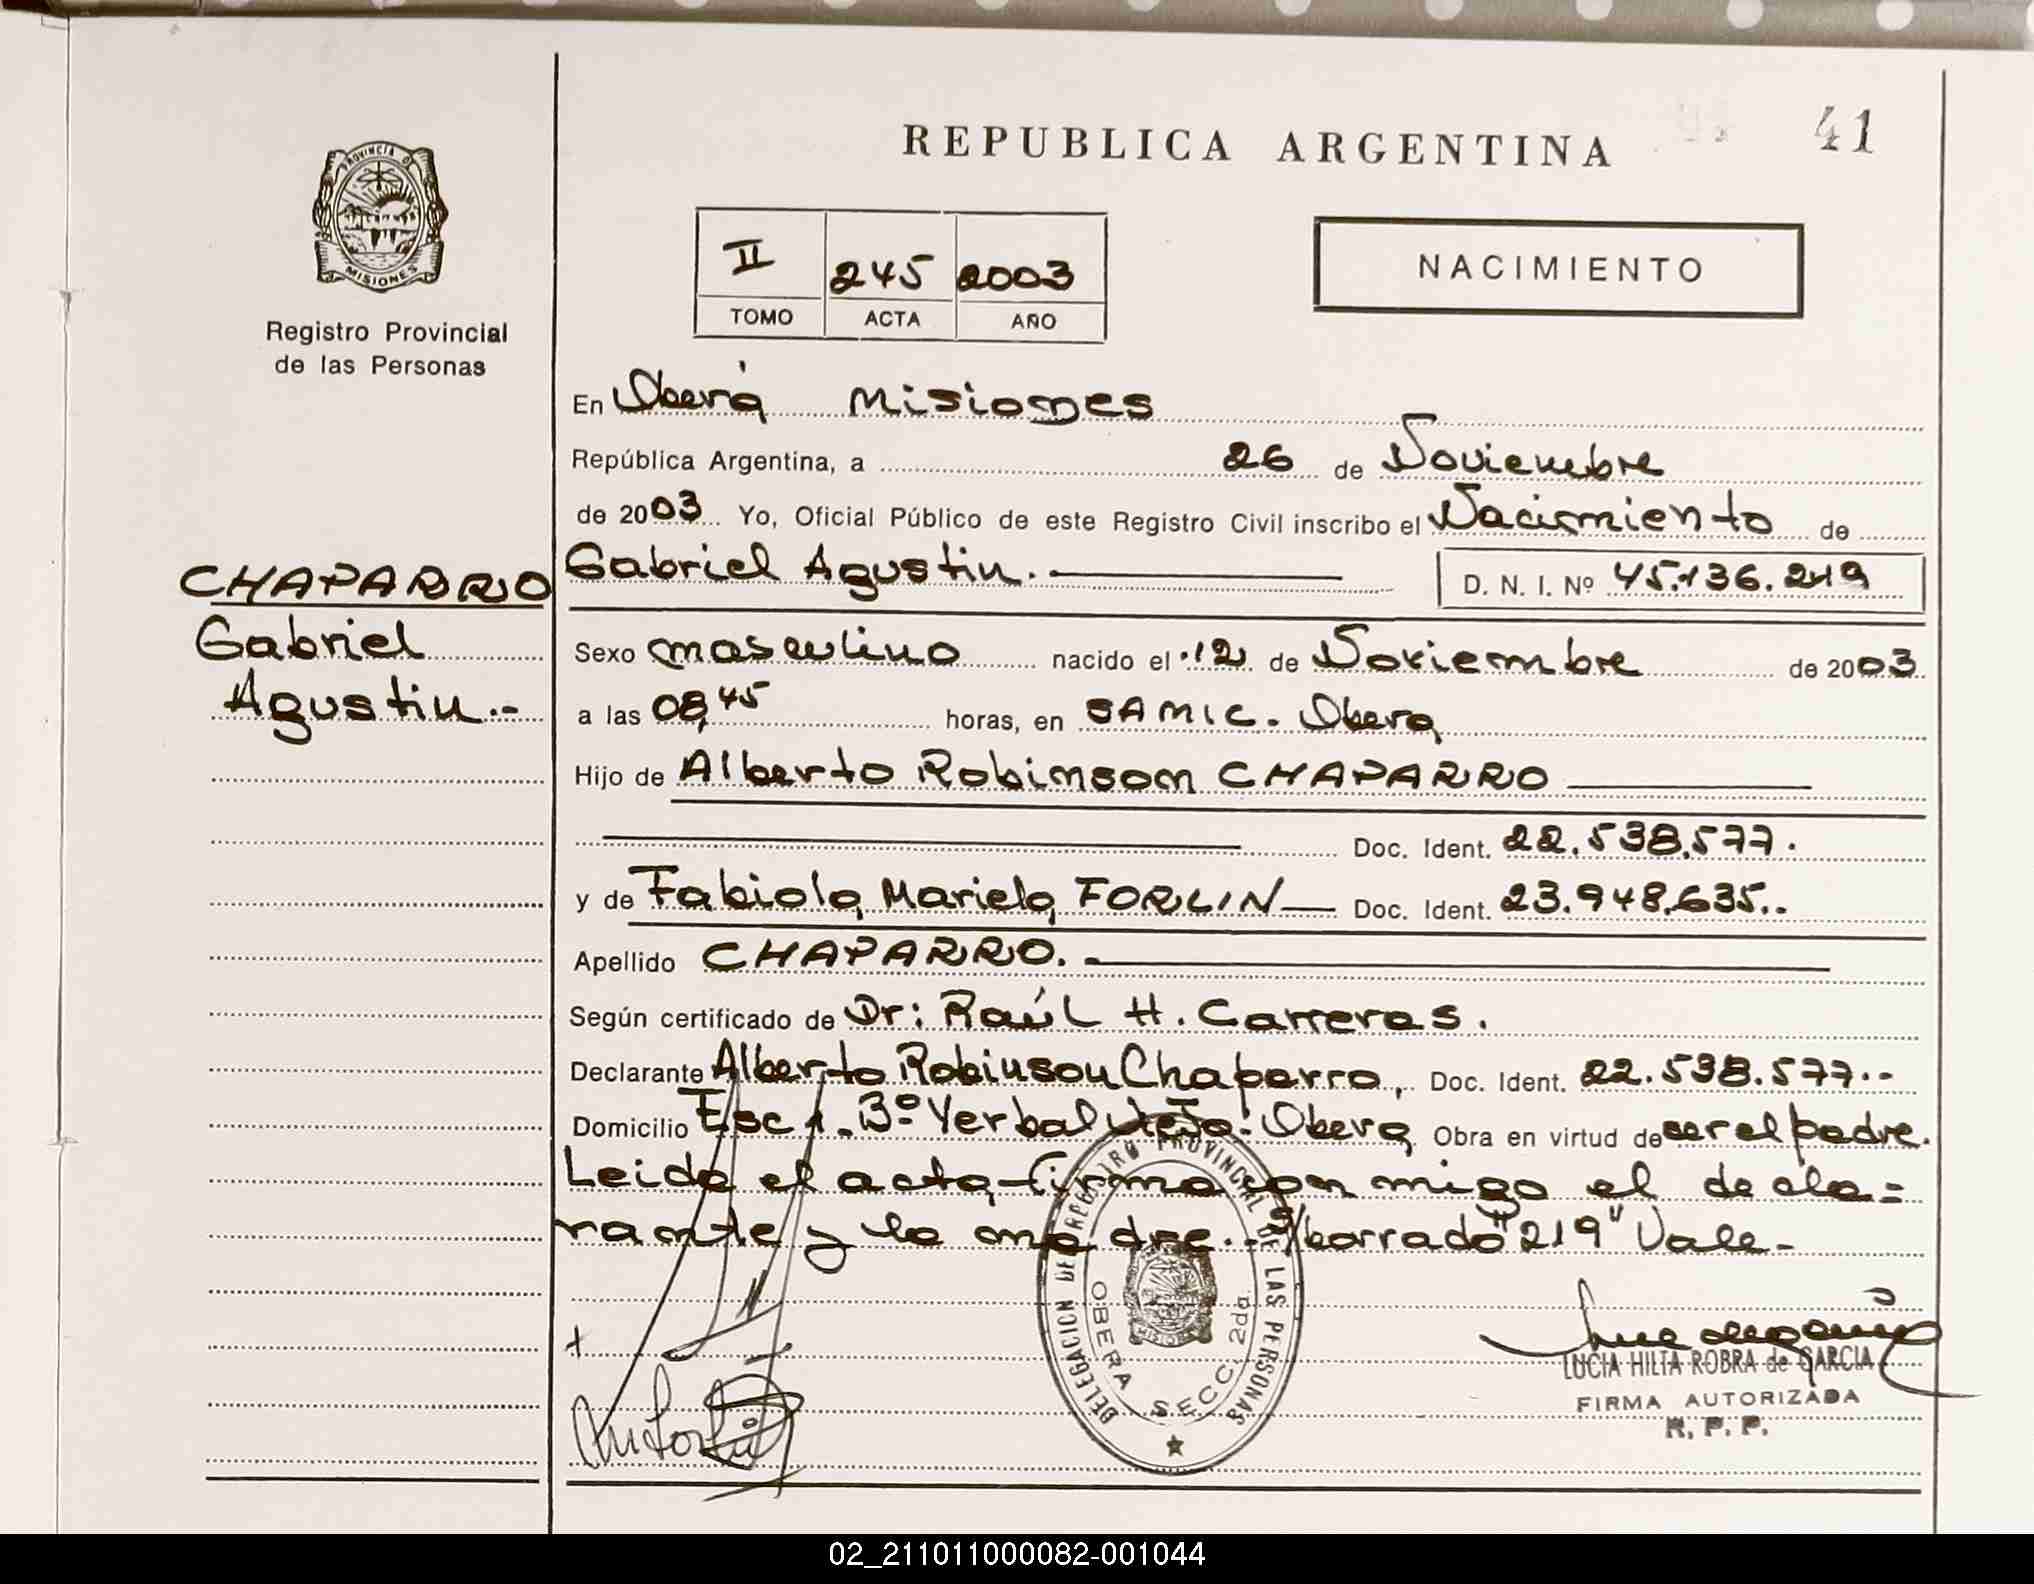 REPUBLICA ARGENTINA
41
PROVINCIA DE
MISIONES
Registro Provincial
de las Personas
II 245 2003
TOMO ACTA AÑO
NACIMIENTO
En Oberá Misiones
República Argentina, a 26 de Noviembre
de 2003 Yo, Oficial Público de este Registro Civil inscribo el Nacimiento de
Gabriel Agustin.
D. N. I. Nº 45.136.219
CHAPARRO
Gabriel
Agustin.-
Sexo masculino nacido el 12 de Noviembre de 2003
a las 08,45 horas, en SAMIC. Obera
Hijo de Alberto Robinson CHAPARRO
Doc. Ident. 22.538.577.
y de Fabiola Mariela FORLIN Doc. Ident. 23.948.635..
Apellido CHAPARRO.
Según certificado de Dr: Raúl H. Carreras.
Declarante Alberto Robinson Chaparro, Doc. Ident. 22.538.577.-
Domicilio Esc 1. Bº Yerbal Viejo. Obera Obra en virtud de ser el padre.
Leida el acta firma con migo el decla=
rante y la madre.- S/borrado "219" Vale-
DELEGACION DE REGISTRO PROVINCIAL DE LAS PERSONAS
OBERA SECC. 2da.
MISIONES
LUCIA HILTA ROBRA de GARCIA
FIRMA AUTORIZADA
R. P. P.
02_211011000082-001044